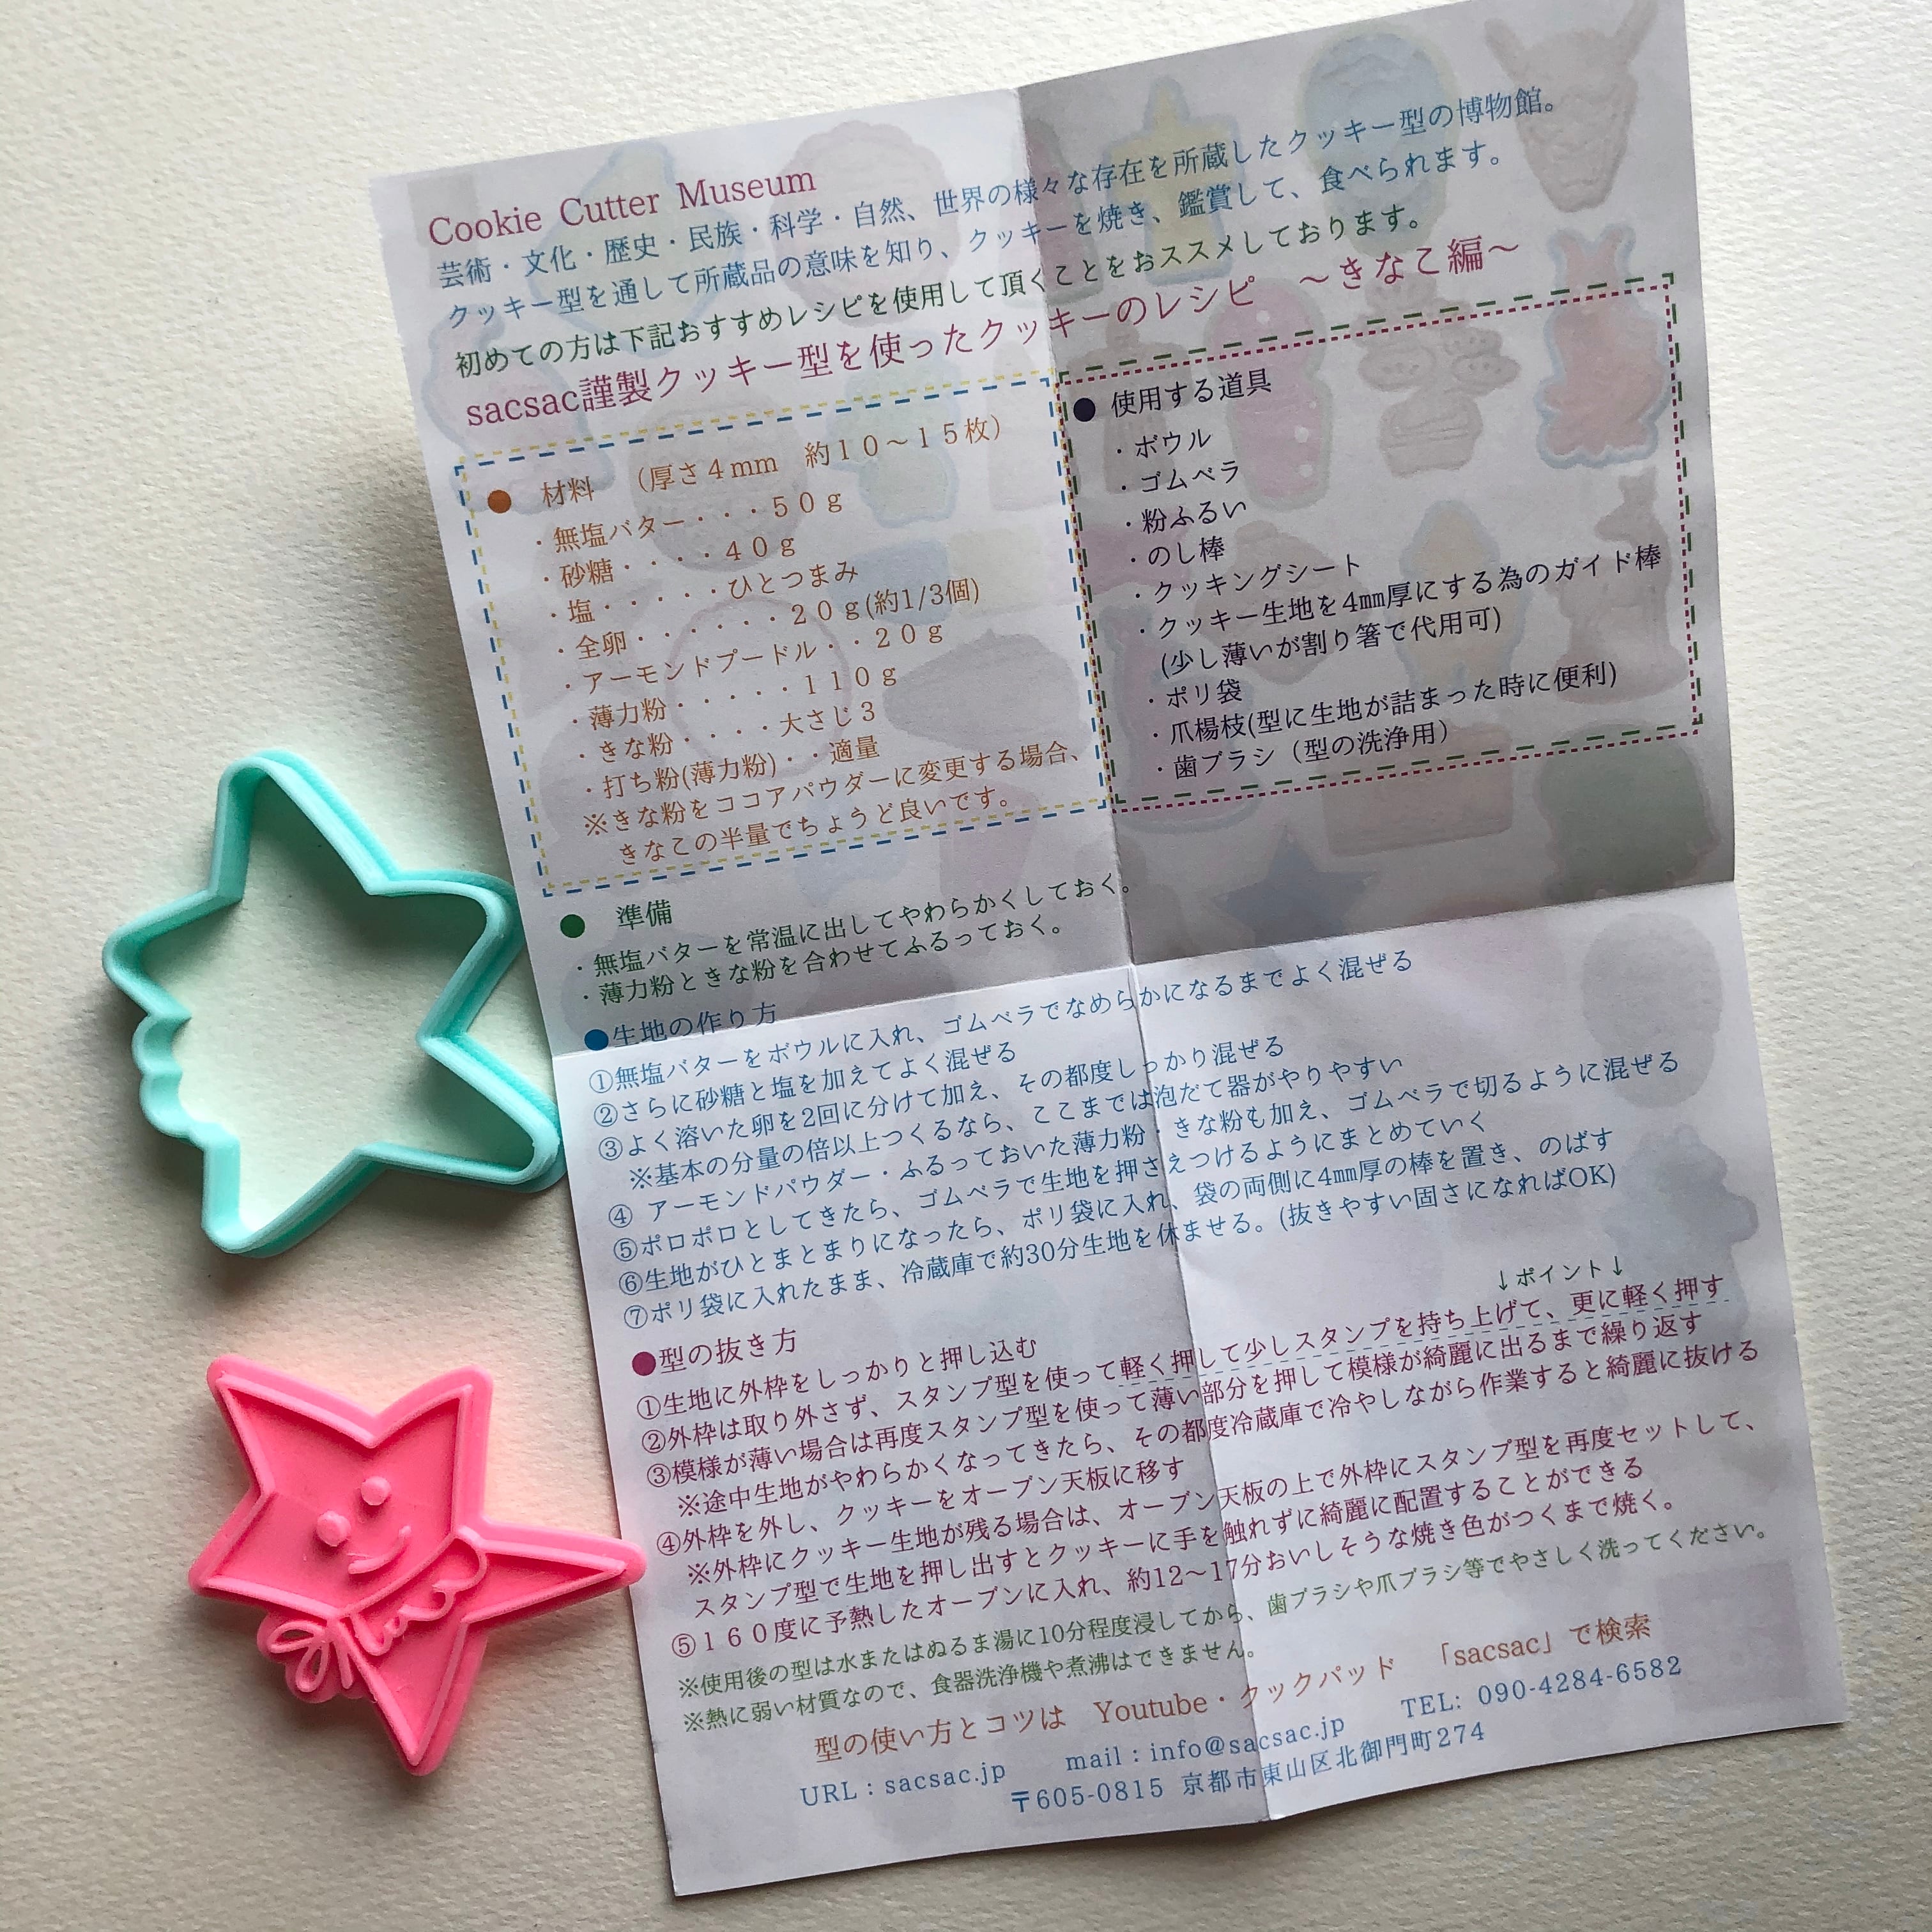 Cookie Cutter Museum
芸術・文化・歴史・民族・科学・自然、世界の様々な存在を所蔵したクッキー型の博物館。
クッキー型を通して所蔵品の意味を知り、クッキーを焼き、鑑賞して、食べられます。
初めての方は下記おすすめレシピを使用して頂くことをおススメしております。
sacsac謹製クッキー型を使ったクッキーのレシピ　～きなこ編～
● 材料　（厚さ４mm　約１０～１５枚）
・無塩バター・・・５０ｇ
・砂糖・・・・４０ｇ
・塩・・・・・ひとつまみ
・全卵・・・・・・２０ｇ(約1/3個)
・アーモンドプードル・・２０ｇ
・薄力粉・・・・・１１０ｇ
・きな粉・・・・大さじ３
・打ち粉(薄力粉)・・適量
※きな粉をココアパウダーに変更する場合、
きなこの半量でちょうど良いです。
● 使用する道具
・ボウル
・ゴムベラ
・粉ふるい
・のし棒
・クッキングシート
・クッキー生地を4㎜厚にする為のガイド棒
(少し薄いが割り箸で代用可)
・ポリ袋
・爪楊枝(型に生地が詰まった時に便利)
・歯ブラシ（型の洗浄用）
● 準備
・無塩バターを常温に出してやわらかくしておく。
・薄力粉ときな粉を合わせてふるっておく。
●生地の作り方
①無塩バターをボウルに入れ、ゴムベラでなめらかになるまでよく混ぜる
②さらに砂糖と塩を加えてよく混ぜる
③よく溶いた卵を2回に分けて加え、その都度しっかり混ぜる
※基本の分量の倍以上つくるなら、ここまでは泡だて器がやりやすい
④ アーモンドパウダー・ふるっておいた薄力粉・きな粉も加え、ゴムベラで切るように混ぜる
⑤ポロポロとしてきたら、ゴムベラで生地を押さえつけるようにまとめていく
⑥生地がひとまとまりになったら、ポリ袋に入れ、袋の両側に4㎜厚の棒を置き、のばす
⑦ポリ袋に入れたまま、冷蔵庫で約30分生地を休ませる。(抜きやすい固さになればOK)
●型の抜き方
↓ポイント↓
①生地に外枠をしっかりと押し込む
②外枠は取り外さず、スタンプ型を使って軽く押して少しスタンプを持ち上げて、更に軽く押す
③模様が薄い場合は再度スタンプ型を使って薄い部分を押して模様が綺麗に出るまで繰り返す
※途中生地がやわらかくなってきたら、その都度冷蔵庫で冷やしながら作業すると綺麗に抜ける
④外枠を外し、クッキーをオーブン天板に移す
※外枠にクッキー生地が残る場合は、オーブン天板の上で外枠にスタンプ型を再度セットして、
スタンプ型で生地を押し出すとクッキーに手を触れずに綺麗に配置することができる
⑤１６０度に予熱したオーブンに入れ、約12～17分おいしそうな焼き色がつくまで焼く。
※使用後の型は水またはぬるま湯に10分程度浸してから、歯ブラシや爪ブラシ等でやさしく洗ってください。
※熱に弱い材質なので、食器洗浄機や煮沸はできません。
型の使い方とコツは　Youtube・クックパッド　「sacsac」で検索
URL：sacsac.jp　mail：info@sacsac.jp　TEL: 090-4284-6582
〒605-0815 京都市東山区北御門町274